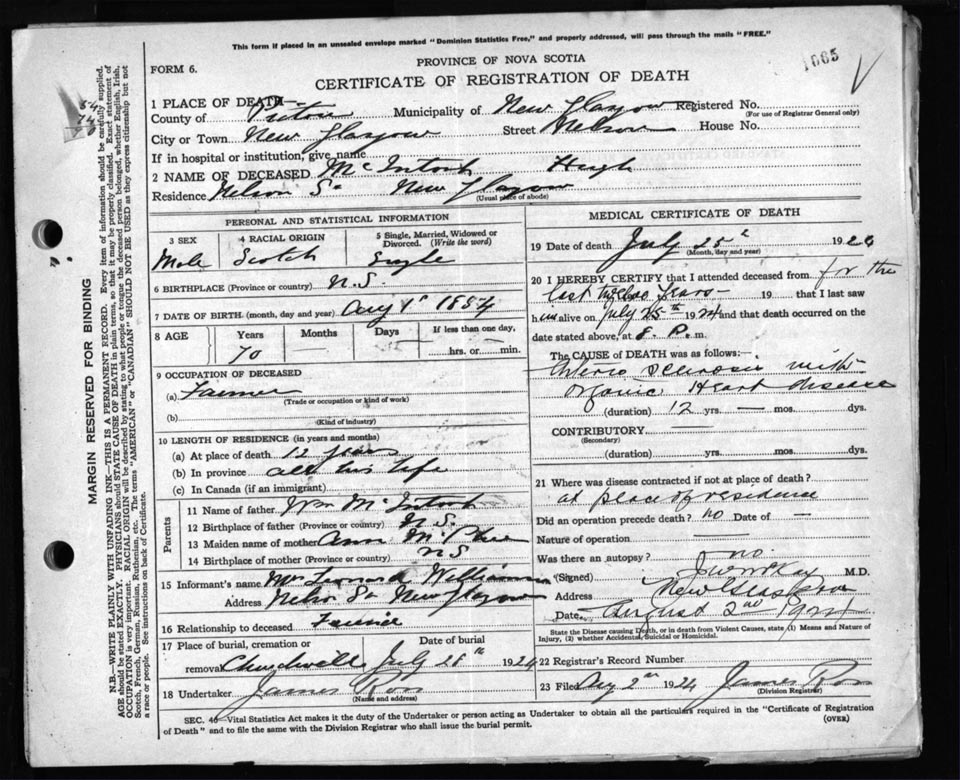 This form if placed in an unsealed envelope marked "Dominion Statistics Free," and properly addressed, will pass through the mails "FREE."
PROVINCE OF NOVA SCOTIA
FORM 6.
1665
CERTIFICATE OF REGISTRATION OF DEATH
MARGIN RESERVED FOR BINDING
N.B.—WRITE PLAINLY WITH UNFADING INK—THIS IS A PERMANENT RECORD. Every item of information should be carefully supplied.
AGE should be stated EXACTLY. PHYSICIANS should STATE CAUSE OF DEATH in plain terms, so that it may be properly classified. Exact statement of
OCCUPATION is very important. RACIAL ORIGIN will be described by stating to what people or tongue the deceased person belonged, whether English, Irish,
Scotch, French, German, Russian, Ruthenian, etc. The terms "AMERICAN" or "CANADIAN" SHOULD NOT BE USED as they express citizenship but not
a race or people. See instructions on back of Certificate.
1 PLACE OF DEATH—
County of Pictou Municipality of New Glasgow Registered No.
(For use of Registrar General only)
City or Town New Glasgow Street Nelson House No.
If in hospital or institution, give name
2 NAME OF DECEASED McIntosh Hugh
Residence Nelson St New Glasgow
(Usual place of abode)
PERSONAL AND STATISTICAL INFORMATION
3 SEX Male
4 RACIAL ORIGIN Scotch
5 Single, Married, Widowed or Divorced. (Write the word) Single
6 BIRTHPLACE (Province or country) N.S.
7 DATE OF BIRTH (month, day and year) Aug 1st 1854
8 AGE Years Months Days If less than one day,
70 — hrs. or min.
9 OCCUPATION OF DECEASED
(a) Farmer
(Trade or occupation or kind of work)
(b)
(Kind of industry)
10 LENGTH OF RESIDENCE (in years and months)
(a) At place of death 12 years
(b) In province all his life
(c) In Canada (if an immigrant)
Parents
11 Name of father Wm McIntosh
12 Birthplace of father (Province or country) N.S.
13 Maiden name of mother Ann
14 Birthplace of mother (Province or country) N S
15 Informant's name Leonard Williams
Address Nelson St New Glasgow
16 Relationship to deceased
17 Place of burial, cremation or removal Churchville Date of burial July 28th 1924
18 Undertaker James Ross
(Name and address)
MEDICAL CERTIFICATE OF DEATH
19 Date of death July 25th 1924
(Month, day and year)
20 I HEREBY CERTIFY that I attended deceased from for the
last twelve years 19 that I last saw
him alive on July 25th 1924 and that death occurred on the
date stated above, at 8. P. m.
The CAUSE OF DEATH was as follows:—
Arterio Sclerosis with
organic Heart disease
(duration) 12 yrs. — mos. dys.
CONTRIBUTORY
(Secondary)
(duration) yrs. mos. dys.
21 Where was disease contracted if not at place of death?
at place of residence
Did an operation precede death? no Date of —
Nature of operation —
Was there an autopsy? no.
(Signed) M.D.
Address New Glasgow
Date August 2nd 1924
State the Disease causing Death, or in death from Violent Causes, state (1) Means and Nature of
Injury, (2) whether Accidental, Suicidal or Homicidal.
22 Registrar's Record Number
23 Filed Aug 2nd 1924 James Ross
(Division Registrar)
SEC. 40—Vital Statistics Act makes it the duty of the Undertaker or person acting as Undertaker to obtain all the particulars required in the "Certificate of Registration
of Death" and to file the same with the Division Registrar who shall issue the burial permit.
(OVER)